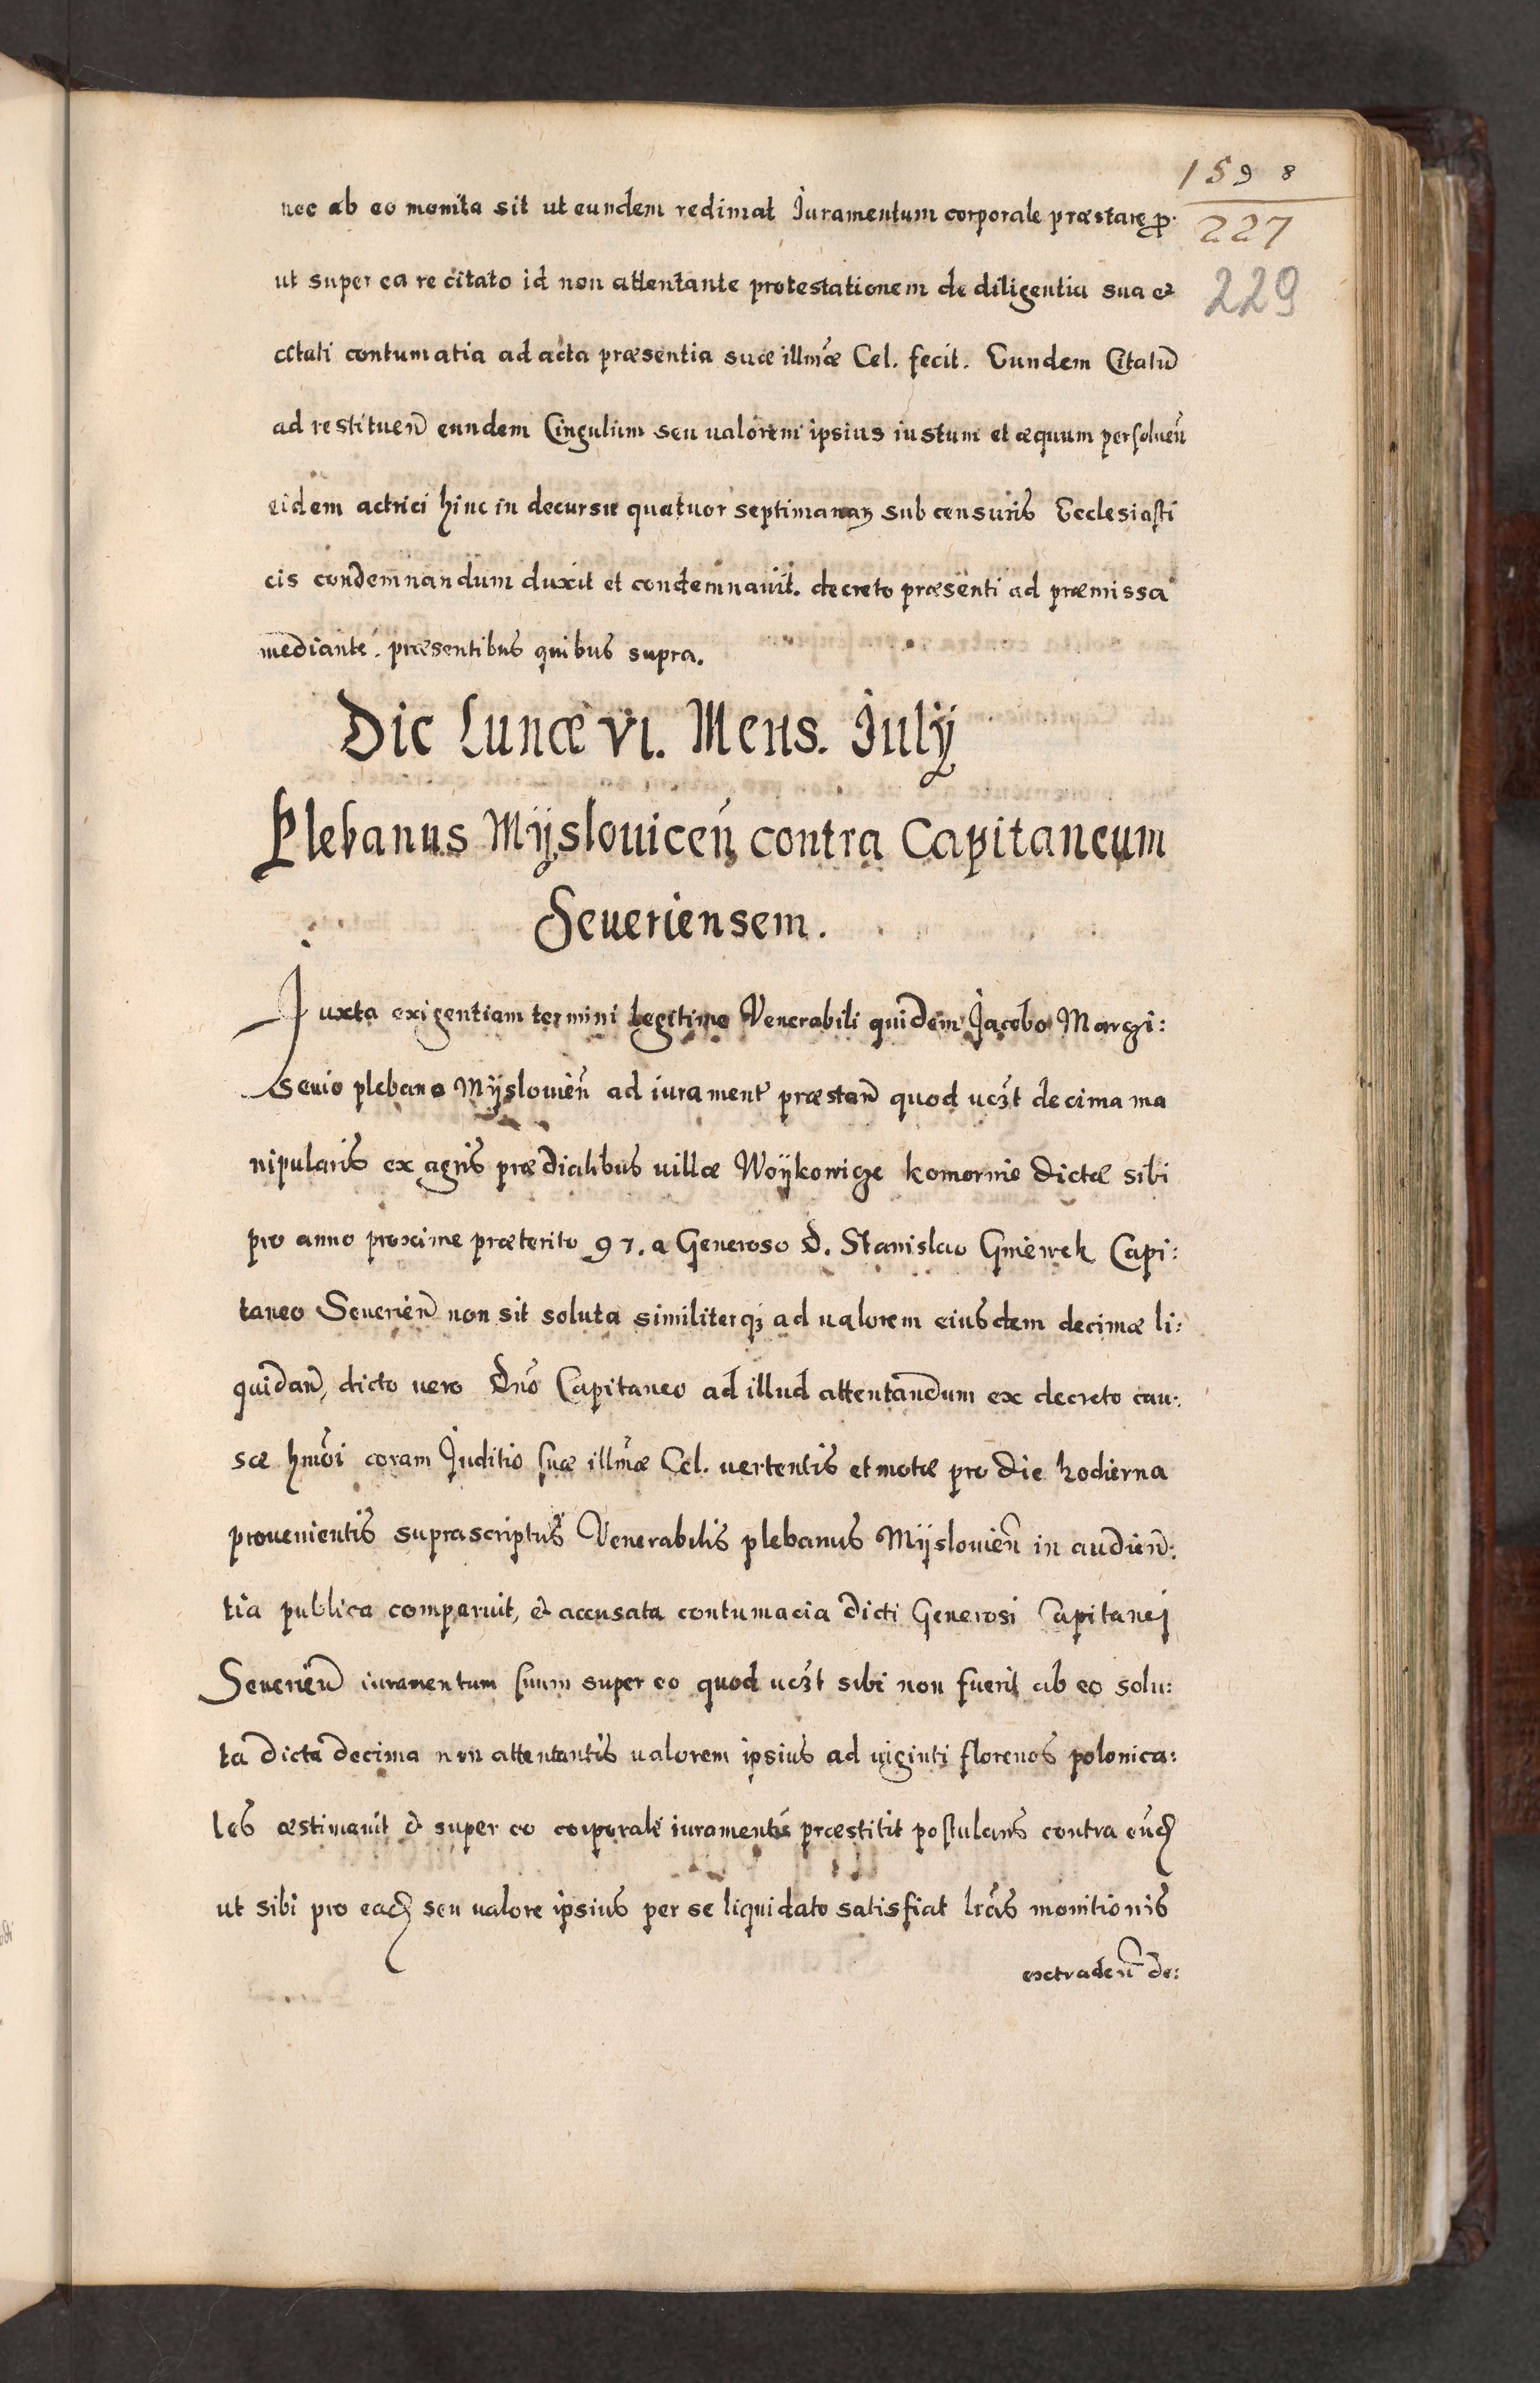 1598
227
229
nec ab eo monita sit ut eundem redimat Juramentum corporale præstare, pro
ut super ea re citato id non attentante protestationem de diligentia sua et
citati contumatia ad acta præsentia suæ illmæ Cel. fecit. Eundem Citatũ
ad restituen̄ eundem Cingulum seu ualorem ipsius iustum et æquum persoluen̄
eidem actrici hinc in decursu quatuor septimanaꝝ sub censuris Ecclesiasti
cis condemnandum duxit et condemnauit. decreto præsenti ad præmissa
mediante. præsentibus quibus supra.
Die Lunæ VI. Mens. Julÿ
Plebanus Mÿslouicen̄ contra Capitaneum
Seueriensem.
Juxta exigentiam termini legitime Venerabili quidem Jacobo Margi:
senio plebano Mÿslouien̄ ad iurament̃ præstan̄ quod uczt decima ma
nipularis ex agris prædialibus uillæ Woÿkowicze komornie dictæ sibi
pro anno proxime præterito 97. a Generoso D. Stanislao Gniewek Capi:
taneo Seuerien̄ non sit soluta similiterqꝫ ad ualorem eiusdem decimæ li:
quidan̄, dicto uero Dnō Capitaneo ad illud attentandum ex decreto cau:
sæ hmōi coram Juditio suæ illmæ Cel. uertentis et motæ pro die hodierna
prouenientis suprascriptus Venerabilis plebanus Mÿslouien̄ in audien̄:
tia publica comparuit, et accusata contumacia dicti Generosi Capitanej
Seuerien̄ iuramentum suum super eo quod uczt sibi non fuerit ab eo solu:
ta dicta decima non attentantis ualorem ipsius ad uiginti florenos polonica:
les æstimauit et super eo corporale iuramentũ præstitit postulans contra eũd
ut sibi pro ead seu ualore ipsius per se liquidato satisfiat lrās monitionis
extraden̄ de: